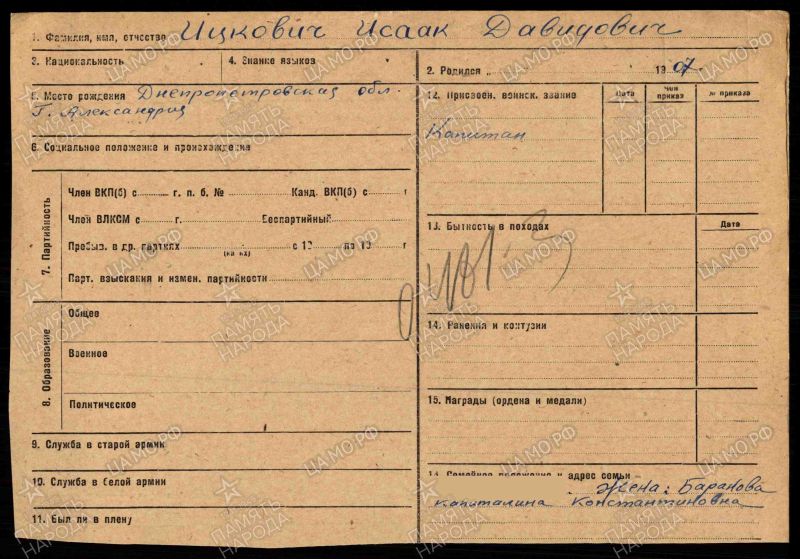 1. Фамилия, имя, отчество Ицкович Исаак Давидович
3. Национальность
4. Знание языков
5. Место рождения Днепропетровская обл.
Г. Александрия
6. Социальное положение и происхождение
7. Партийность
Член ВКП(б) с г. п. б. № Канд. ВКП(б) с г
Член ВЛКСМ с г. Беспартийный
Пребыв. в др. партиях с 19 по 19 г
(каких)
Парт. взыскания и измен. партийности
8. Образование
Общее
Военное
Политическое
9. Служба в старой армии
10. Служба в белой армии
11. Был ли в плену
2. Родился „ 1907
12. Присвоен. воинск. звание
Дата
Чей приказ
№ приказа
Капитан
13. Бытность в походах
Дата
14. Ранения и контузии
15. Награды (ордена и медали)
Семейное положение и адрес семьи
Жена: Баранова
Капиталина Константиновна
ПАМЯТЬ НАРОДА
ЦАМО.РФ